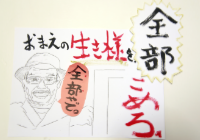 おまえの生き様を、
全部
こめろ。
全部